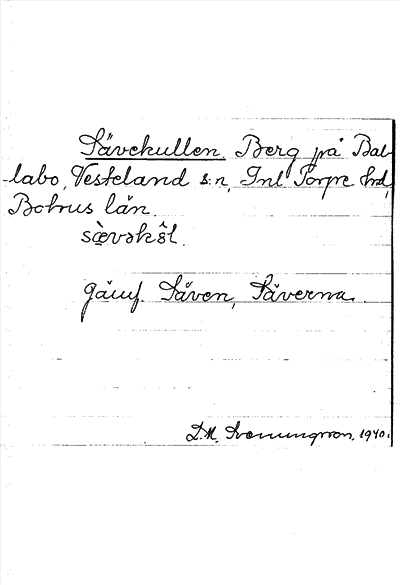 Sävekullen. Berg på Bal-
labo, Vesteland s:n, Inl Torpe hrd,
Bohus län.
sæ̀vəkŝl.
Jämf. Säven, Säverna.
D.M. 1940.